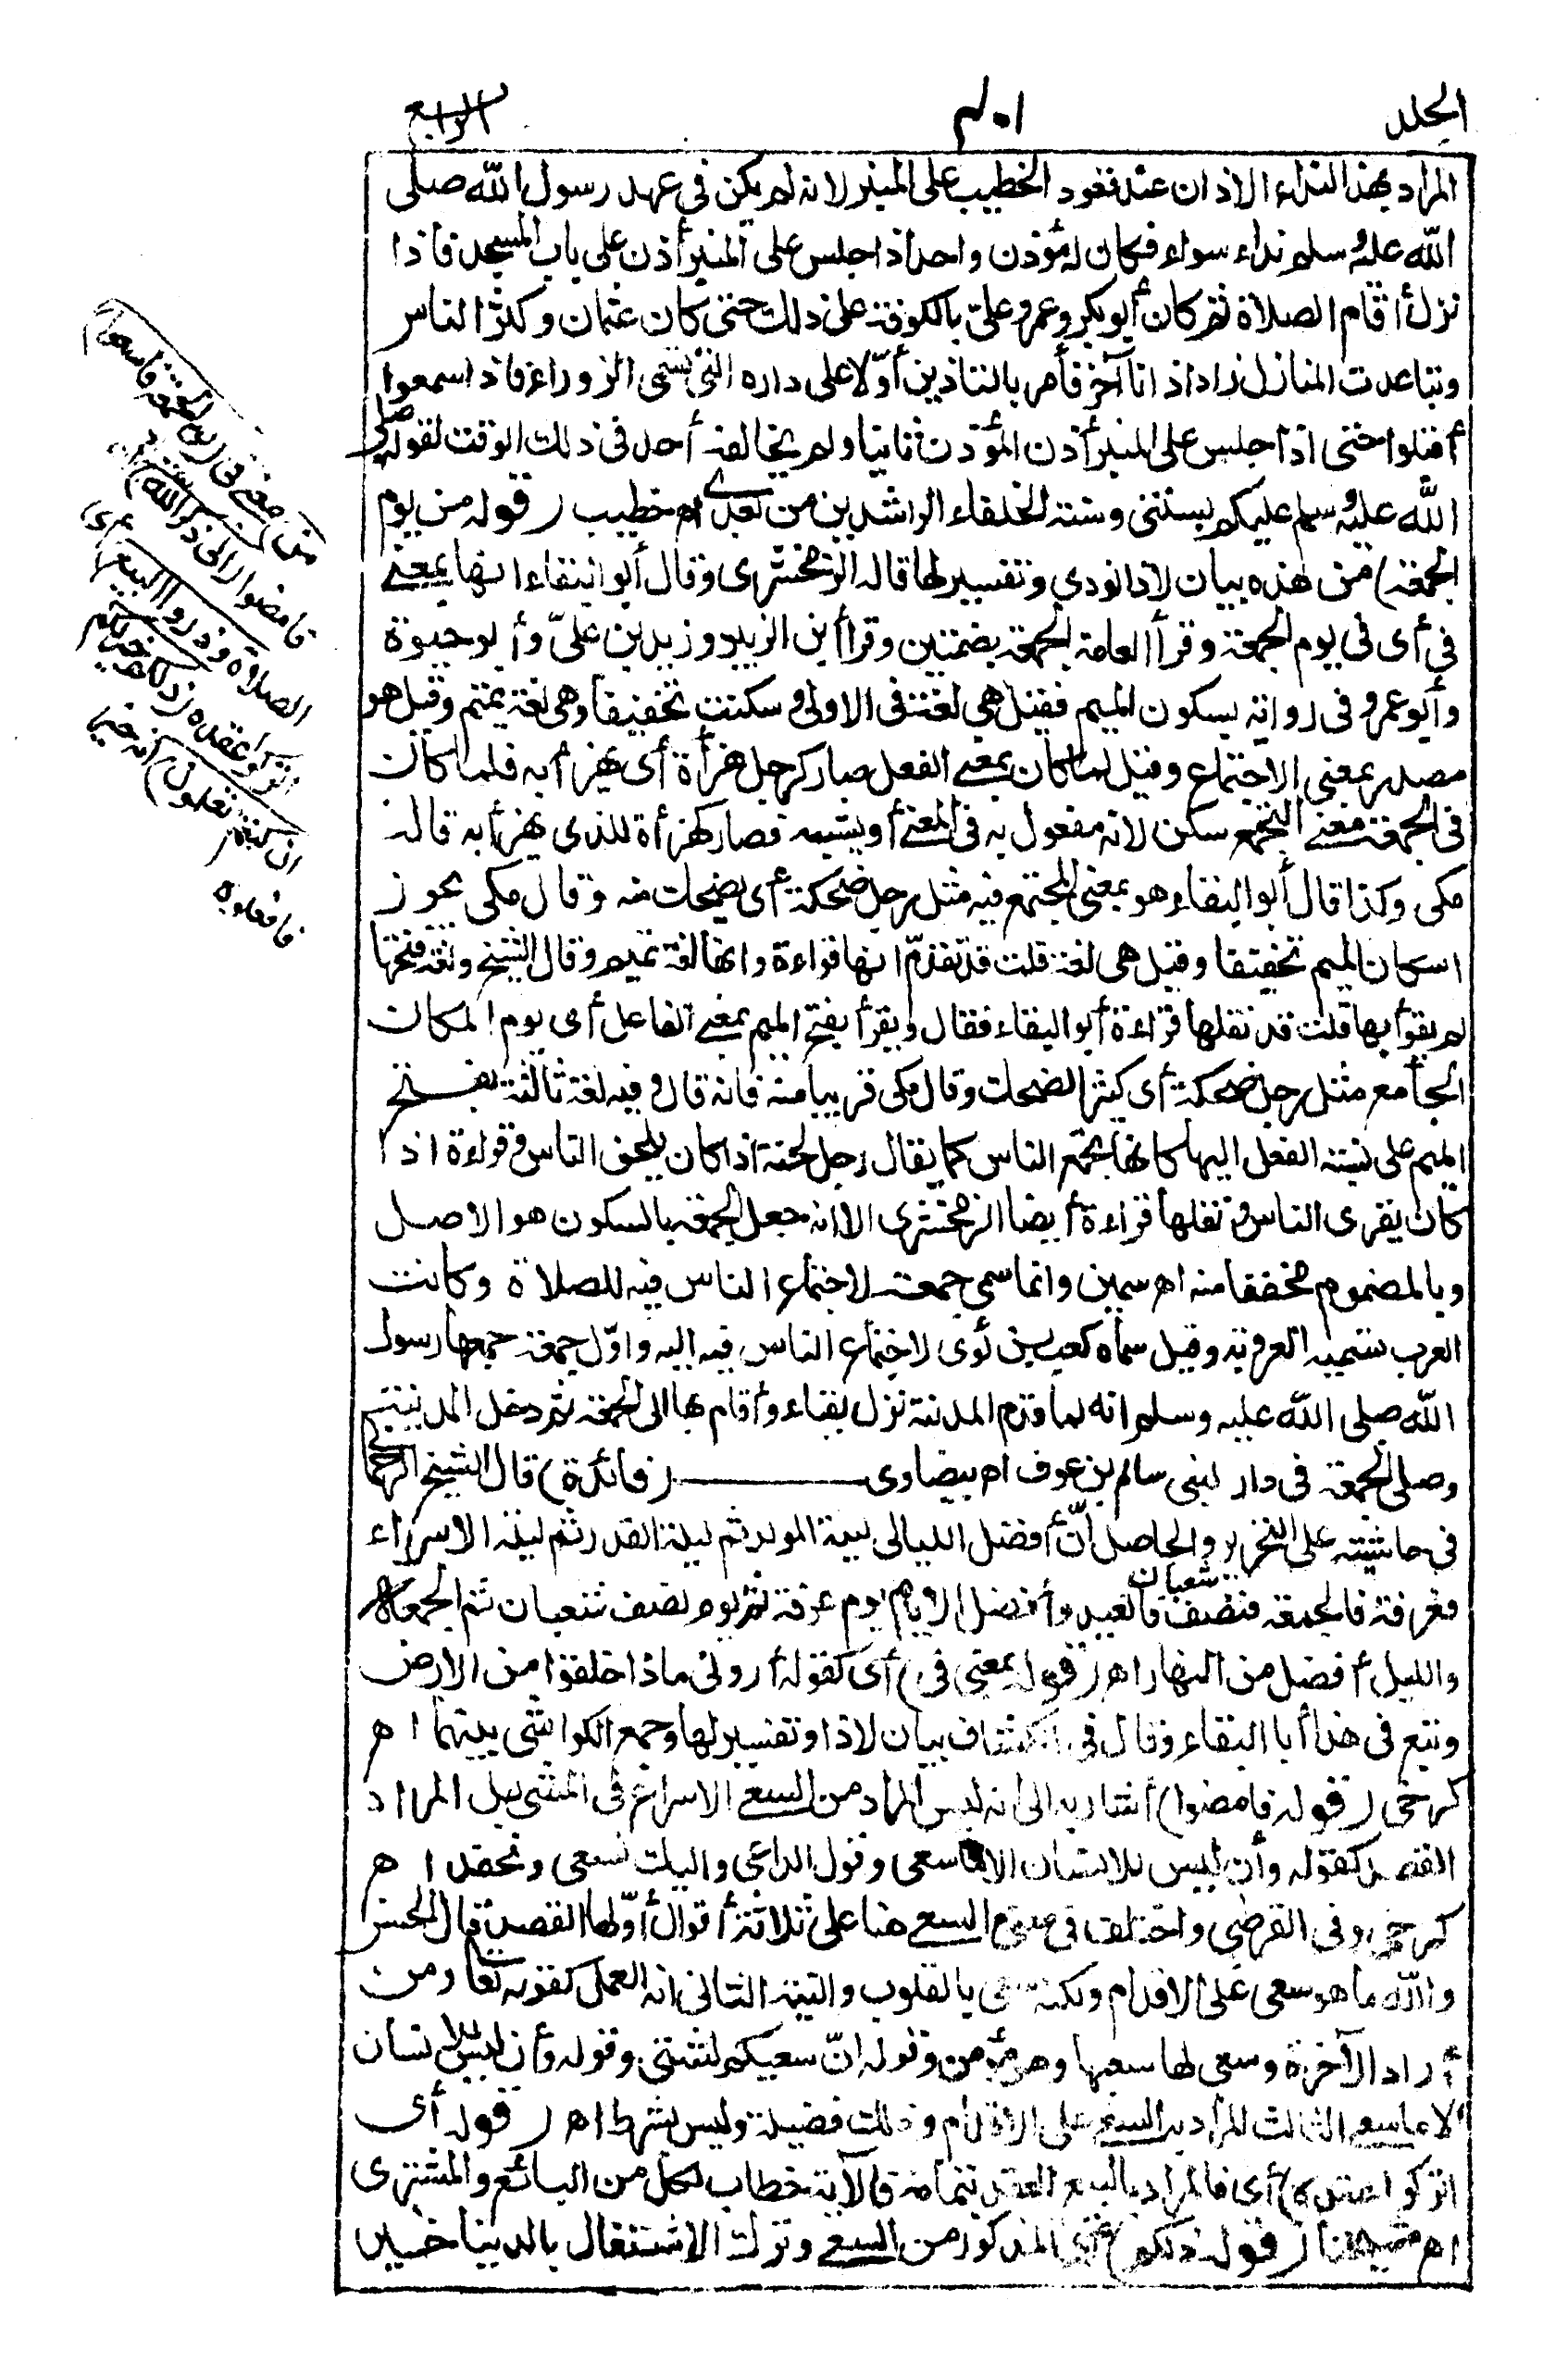 الجلد
٤٠١
الرابع
المراد بهذا النداء الاذان عند قعود الخطيب على المنبر لانه لم يكن في عهد رسول الله صلى
الله عليه وسلم نداء سواه فكان له مؤذن واحد اذا جلس على المنبر أذن على باب المسجد فاذا
نزل أقام الصلاة ثم كان أبو بكر وعمر وعلىّ بالكوفة على ذلك حتى كان عثمان وكثر الناس
وتباعدت المنازل زاد اذانا آخر فأمر بالتاذين أوّلا على داره التي تسمى الزوراء فاذا سمعوا
أقبلوا حتى اذا جلس على المنبر أذن المؤذن ثانيا ولم يخالفه أحد فى ذلك الوقت لقوله صلى
الله عليه وسلم عليكم بسنتى وسنة الخلفاء الراشدين من بعدى اه خطيب (قوله من يوم
الجمعة) من هذه بيان لاذا نودي وتفسير لها قاله الزمخشرى وقال أبو البقاء انها بمعنى
في أى فى يوم الجمعة وقرأ العامة الجمعة بضمتين وقرأ ابن الزبير وزيد بن علىّ وأبو حيوة
وأبو عمرو فى رواية بسكون الميم فقيل هي لغة فى الاولى وسكنت تخفيفا وهى لغة تميم وقيل هو
مصدر بمعنى الاجتماع وقيل لما كان بمعنى الفعل صار كرجل هزأة أى يهزأ به فلما كان
فى الجمعة معنى التجمع سكن لانه مفعول به فى المعنى أو يشبهه فصار كهزأة للذى يهزأ به قاله
مكى وكذا قال أبو البقاء هو بمعنى المجتمع فيه مثل رجل ضحكة أى يضحك منه وقال مكى يجوز
اسكان الميم تخفيفا وقيل هى لغة قلت قد تقدّم انها قراءة وانها لغة تميم وقال الشيخ ولغة فتحها
لم يقرأ بها قلت قد نقلها قراءة أبو البقاء فقال ويقرأ بفتح الميم بمعنى الفاعل أى يوم المكان
الجامع مثل رجل ضحكة أى كثير الضحك وقال مكى قريبا منه فانه قال وفيه لغة ثالثة بفتح
الميم على نسبة الفعل اليها كانها تجمع الناس كما يقال رجل لحنة اذا كان يلحن الناس وقراءة اذا
كان يقرى الناس ونقلها قراءة أيضا الزمخشرى الا انه جعل الجمعة بالسكون هو الاصل
وبالمضموم مخففا منه اه سمين وانما سمي جمعة لاجتماع الناس فيه للصلاة وكانت
العرب تسميه العروبة وقيل سماه كعب بن لؤى لاجتماع الناس فيه اليه واوّل جمعة جمعها رسول
الله صلى الله عليه وسلم انه لما قدم المدينة نزل بقباء وأقام بها الى الجمعة ثم دخل المدينة
وصلى الجمعة فى دار لبنى سالم بن عوف اه بيضاوى (فائدة) قال الشيخ الرحمانى
فى حاشيته على التحرير والحاصل أنّ أفضل الليالى ليلة المولد ثم ليلة القدر ثم ليلة الاسراء
فعرفة فالجمعة فنصف شعبان فالعيد وأفضل الايام يوم عرفة ثم يوم نصف شعبان ثم الجمعة
والليل أفضل من النهار اه (قوله بمعنى فى) أى كقوله أرونى ماذا خلقوا من الارض
وتبع فى هذا أبا البقاء وقال فى الكشاف بيان لاذا وتفسير لها وجمع الكواشى بينهما اه
كرخى (قوله فامضوا) أشار به الى أنه ليس المراد من السعى الاسراع فى المشى بل المراد
القصد كقوله وأن ليس للانسان الا ما سعى وقول الداعى واليك نسعى ونحفد اه
كرخى وفى القرطبي واختلف فى معنى السعى هنا على ثلاثة أقوال أوّلها القصد قال الحسن
والله ما هو سعى على الاقدام ولكنه سعى بالقلوب والنية الثانى انه العمل كقوله تعالى ومن
أراد الآخرة وسعى لها سعيها وهو مؤمن وقوله انّ سعيكم لشتى وقوله وأن ليس للانسان
الا ما سعى الثالث المراد به السعى على الاقدام وذلك فضيلة وليس بشرط اه (قوله أى
اتركوا عقده) أى فالمراد بالبيع العقد بتمامه فالآية خطاب لكل من البائع والمشترى
اه شيخنا (قوله ذلكم) أى المذكور من السعى وترك الاشتغال بالدنيا خير
من) بمعنى فى (يوم الجمعة فاسعوا)
فامضوا (الى ذكر الله)
الصلاة (وذروا البيع) أى
اتركوا عقده (ذلكم خير لكم
ان كنتم تعلمون) أنه خير
فافعلوه